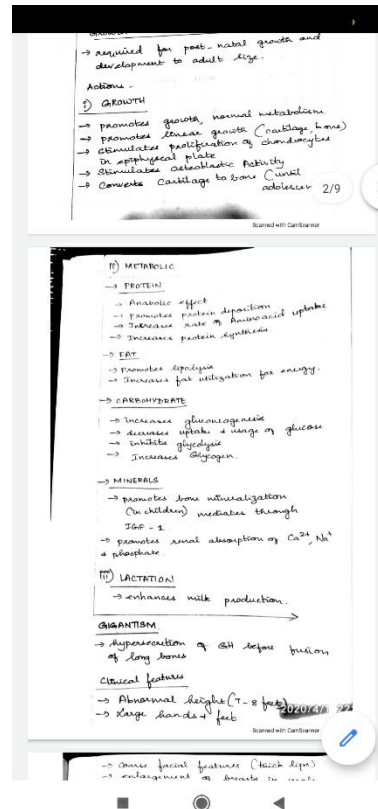 Growth
→ required for post-natal growth and
development to adult size.
Actions -
i) GROWTH
→ promotes growth, normal metabolism
→ promotes linear growth (cartilage, bone)
→ stimulates proliferation of chondrocytes
in epiphyseal plate
→ stimulates osteoblastic Activity
→ converts cartilage to bone (until
adolescen
2/9
Scanned with CamScanner
ii) METABOLIC
→ PROTEIN
→ Anabolic effect
→ promotes protein deposition
→ Increases rate of Aminoacid uptake
→ Increases protein synthesis
→ FAT
→ Promotes lipolysis
→ Increases fat utilization for energy.
→ CARBOHYDRATE
→ increases gluconeogenesis
→ decreases uptake & usage of glucose
→ inhibits glycolysis
→ Increases Glycogen.
→ MINERALS
→ promotes bone mineralization
(in children) mediates through
IGF-1
→ promotes renal absorption of Ca2+, Na+
& phosphate
iii) LACTATION
→ enhances milk production.
GIGANTISM
→ hypersecretion of GH before fusion
of long bones
Clinical features
→ Abnormal height (7-8 feet)
→ Large hands & feet
2020/4/1 22:
Scanned with CamScanner
→ coarse facial features (thick lips)
→ enlargement of breasts in